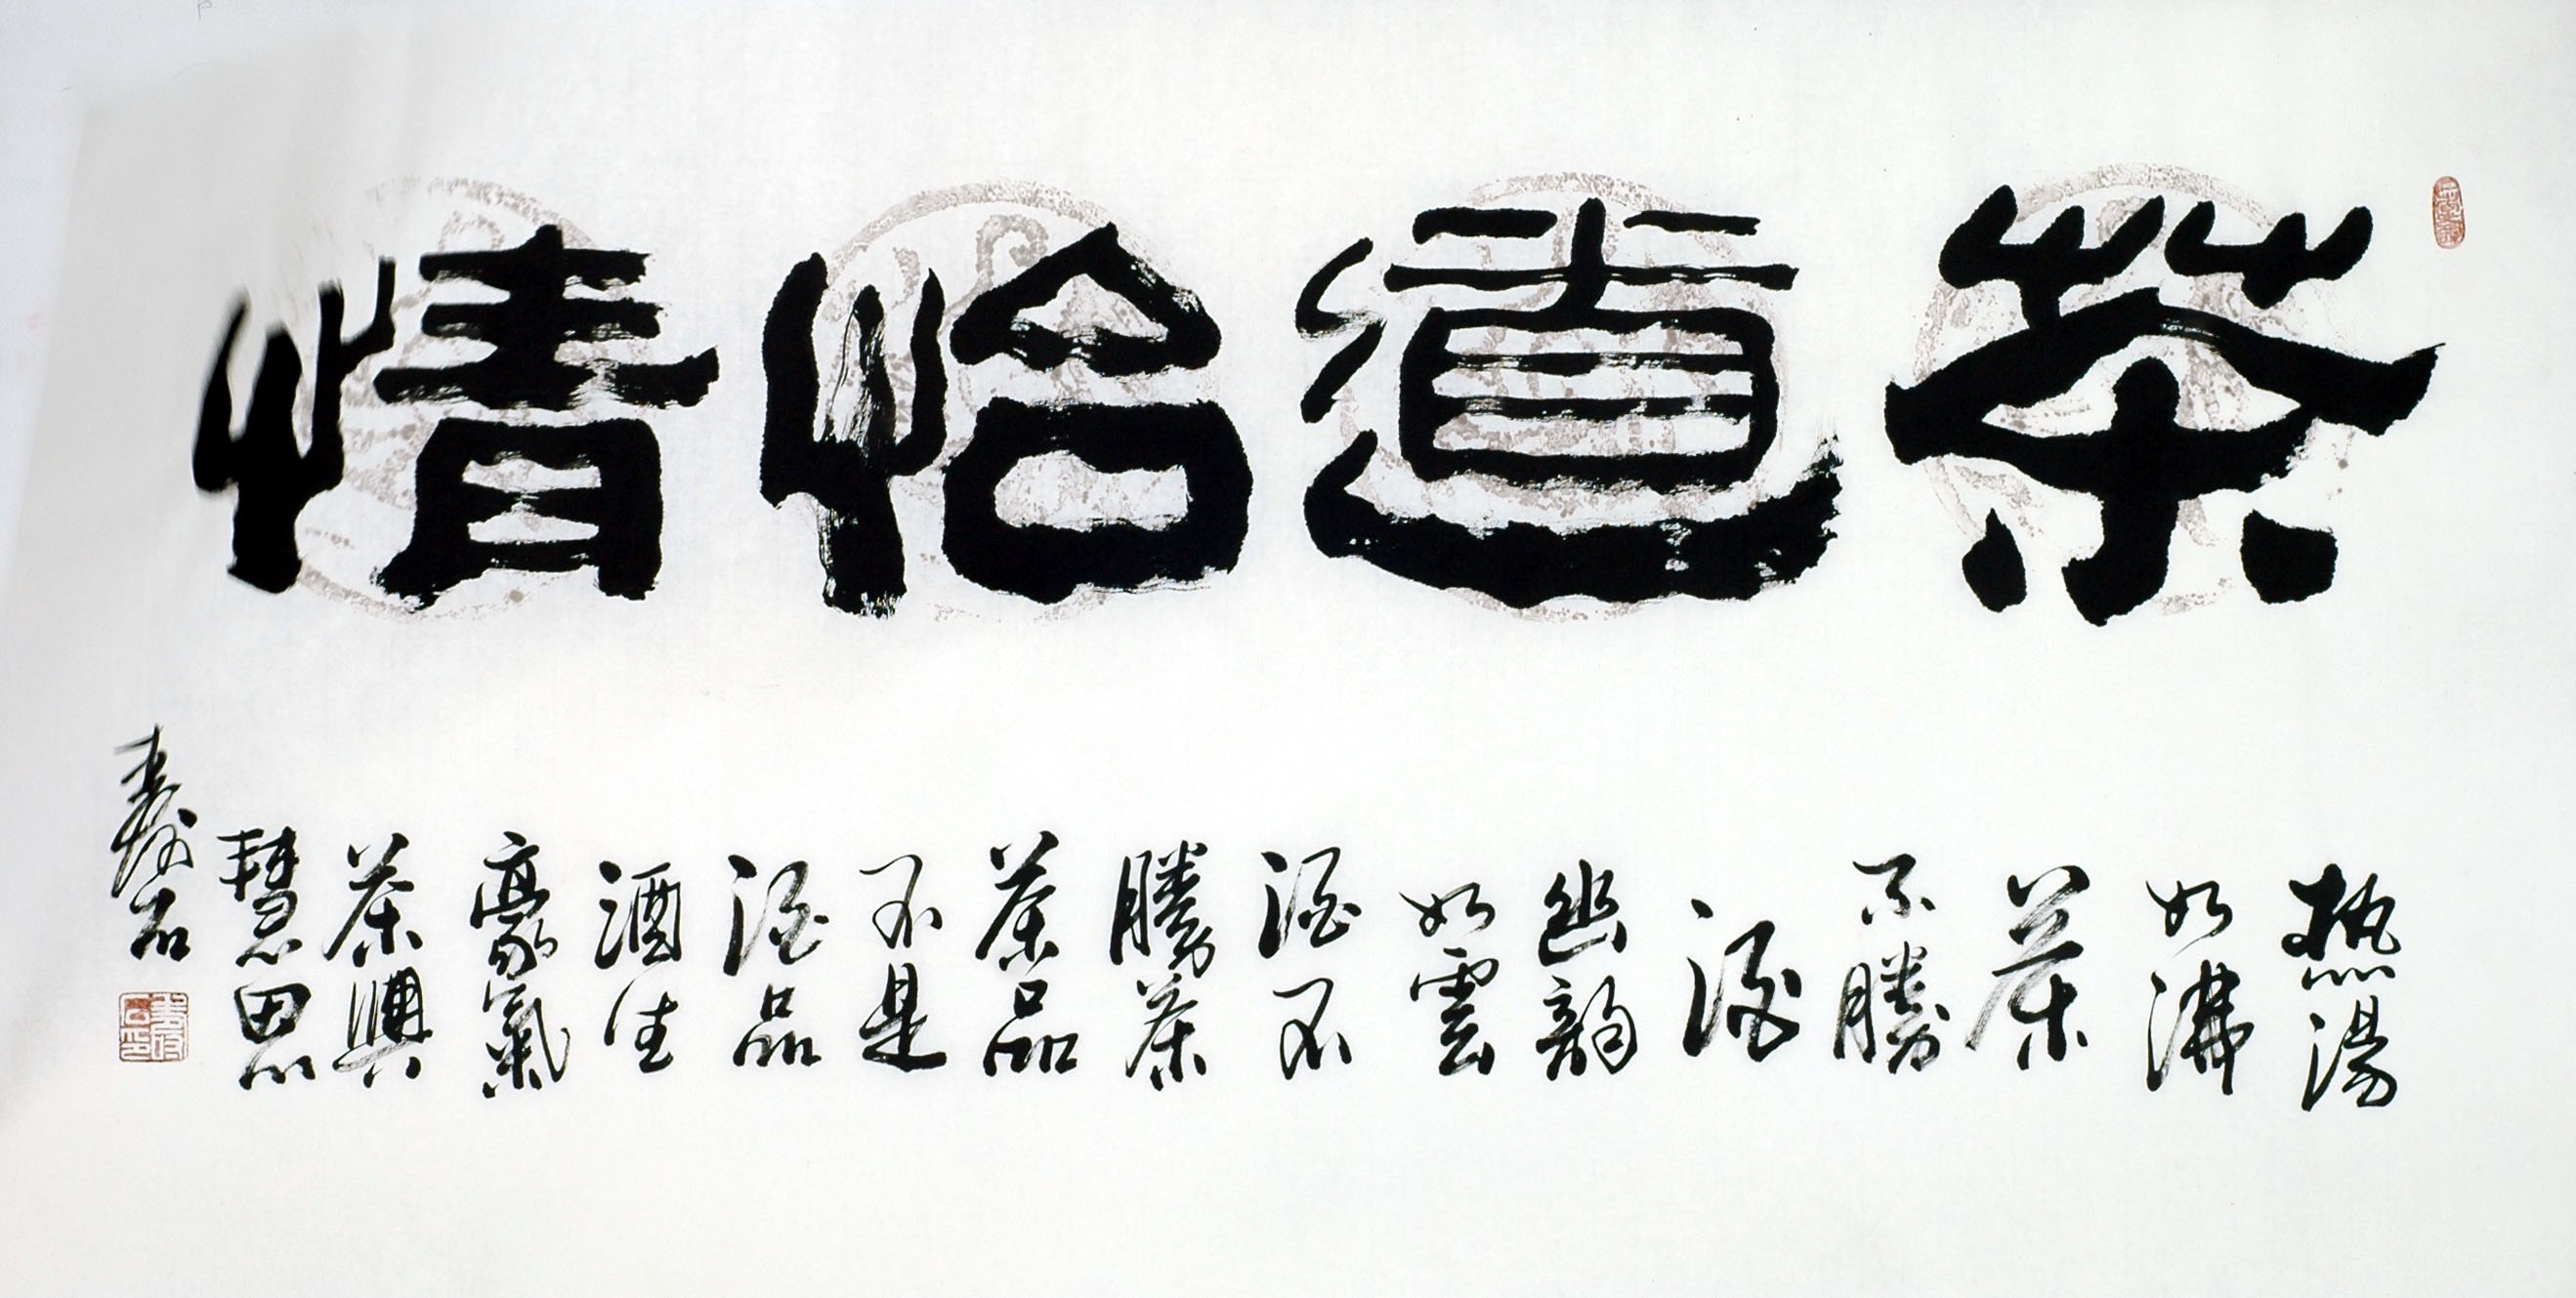 茶道怡情
熱湯
如沸
茶
不勝
酒
幽韵
如雲
酒不
勝茶
茶品
不是
酒品
酒生
豪氣
茶興
慧思
壽石